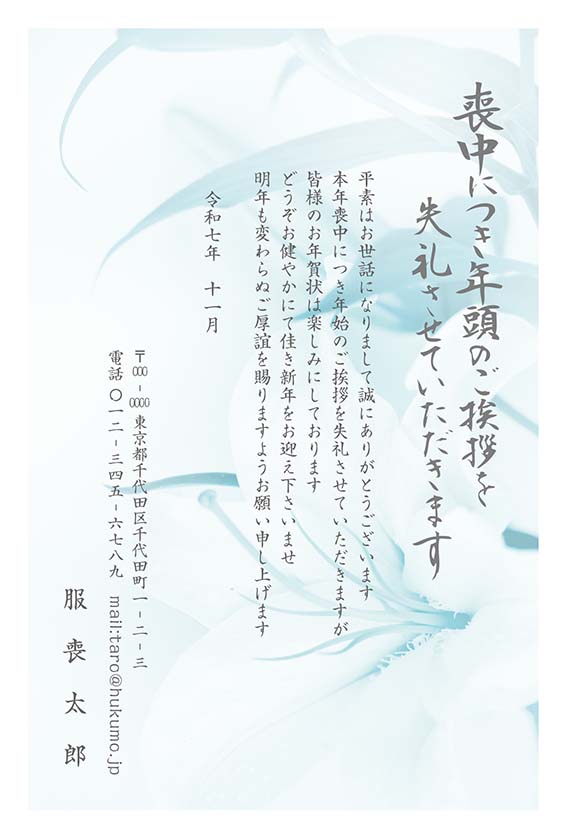 喪中につき年頭のご挨拶を
失礼させていただきます
平素はお世話になりまして誠にありがとうございます
本年喪中につき年始のご挨拶を失礼させていただきますが
皆様のお年賀状は楽しみにしております
どうぞお健やかにて佳き新年をお迎え下さいませ
明年も変わらぬご厚誼を賜りますようお願い申し上げます
令和七年　十一月
〒000-0000 東京都千代田区千代田町一-二-三
電話〇一二-三四五-六七八九　mail:taro@hukumo.jp
服喪太郎